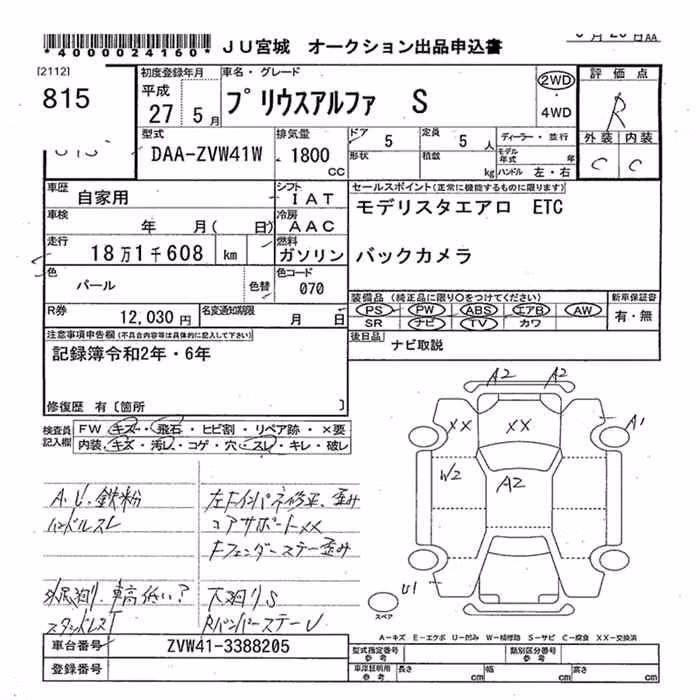 *4000024160* JU宮城 オークション出品申込書
[2112]
815
初度登録年月 車名・グレード
平成 27 5月 プリウスアルファ S 2WD・4WD
評価点 R
外装 内装
C C
型式 排気量 ドア 定員 ディーラー・並行
DAA-ZVW41W 1800 CC 5 5人
形状 積載 kg モデル年式 年
ハンドル 左・右
車歴 自家用 シフト IAT
セールスポイント(正常に機能するものに限ります)
車検 年 月( 日) 冷房 AAC
モデリスタエアロ ETC
走行 18万1千608 km 燃料 ガソリン
バックカメラ
色 パール 色替 色コード 070
装備品 (純正品に限り○をつけてください) 新車保証書
PS PW ABS エアB AW 有・無
SR ナビ TV カワ
R券 12,030円 名変通知期限 月 日
後日品 ナビ取説
注意事項申告欄(不具合内容等は具体的に記入して下さい)
記録簿令和2年・6年
修復歴 有〔箇所 〕
検査員記入欄 FW キズ・飛石・ヒビ割・リペア跡・×要
内装・キズ・汚レ・コゲ・穴・スレ・キレ・破レ
A2 A2
XX XX A1
W2 A2
U1
スペア
A.U.鉄粉
ハンドルスレ
左Fインパネ修正、歪み
コアサポートXX
Fフェンダーステー歪み
車高低い?
下廻りS
RバンパーステーU
A−キズ E−エクボ U−凹み W−補修跡 S−サビ C−腐食 XX−交換済
車台番号 ZVW41-3388205
登録番号
型式指定番号 参考 類別区分番号 参考
車庫証明用 参考 長さ cm 幅 cm 高さ cm